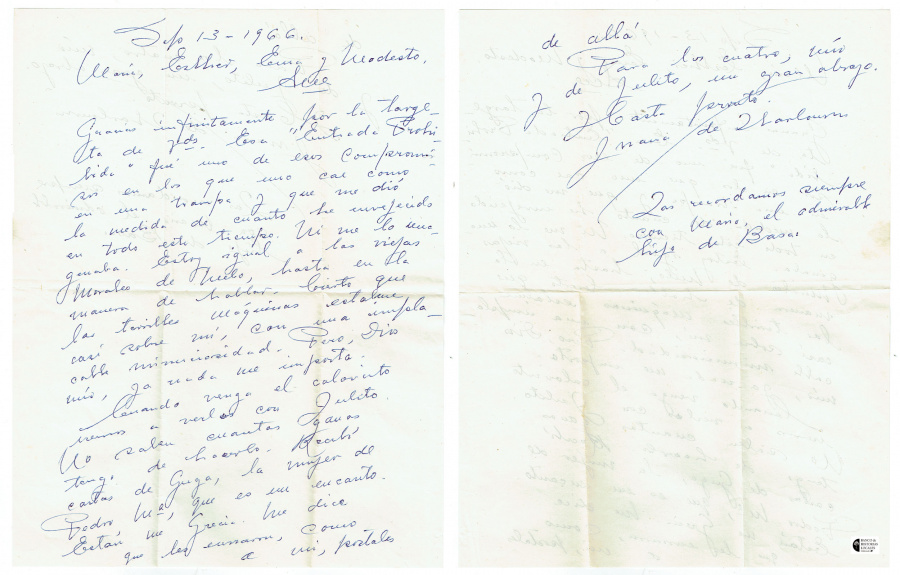 Sep 13 - 1966.
Mané, Esther, Ema y Modesto,
Gracias infinitamente por la targe-
ta de Uds. Esa "Entrada Prohi-
bida" fué uno de esos compromi-
sos en los que uno cae como
en una trampa y que me dió
la medida de cuanto he envejecido
en todo este tiempo. Ni me lo ima-
ginaba. Estoy igual a las viejas
Morales de Melo, hasta en la
manera de hablar. Cierto que
las terribles maquinas estaban
casi sobre mí, con una impla-
cable minuciosidad. Pero, Dios
mío, ya nada me importa.
Cuando venga el calorcito
iremos a verlos con Julito.
No saben cuantas ganas
tengo de hacerlo. Recibí
cartas de Guga, la mujer de
Pedro Mª, que es un encanto.
Están en Grecia. Me dice
que les enviaron, como
a mi, postales
de allá
Para los cuatro, mío
y de Julito, un gran abrazo.
y Hasta pronto.
Juana de Ibarbourou
Los recordamos siempre
con Mario, el admirable
hijo de Basso
BANCO de
HISTORIAS
LOCALES